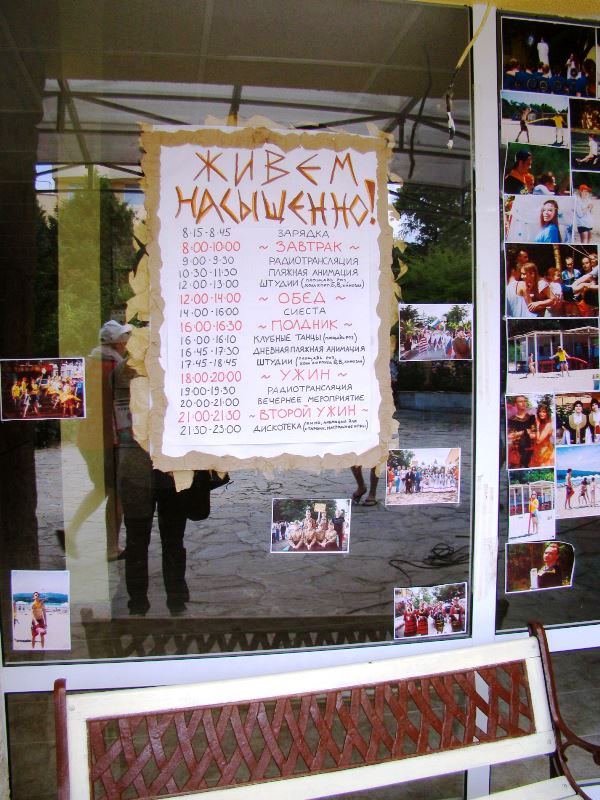 ЖИВЕМ
НАСЫЩЕННО!
8·15-8·45 ЗАРЯДКА
8:00-10:00 ~ ЗАВТРАК ~
9·00-9·30 РАДИОТРАНСЛЯЦИЯ
10·30-11·30 ПЛЯЖНАЯ АНИМАЦИЯ
12·00-13·00 ШТУДИИ
12:00-14:00 ~ ОБЕД ~
14·00-16:00 СИЕСТА
16:00-16:30 ~ ПОЛДНИК ~
16·00-16·10 КЛУБНЫЕ ТАНЦЫ (площадь роз)
16·45-17·30 ДНЕВНАЯ ПЛЯЖНАЯ АНИМАЦИЯ
17·45-18·45 ШТУДИИ
18:00-20:00 ~ УЖИН ~
19·00-19·30 РАДИОТРАНСЛЯЦИЯ
20·00-21·00 ВЕЧЕРНЕЕ МЕРОПРИЯТИЕ
21:00-21:30 ~ ВТОРОЙ УЖИН ~
21:30-23:00 ДИСКОТЕКА